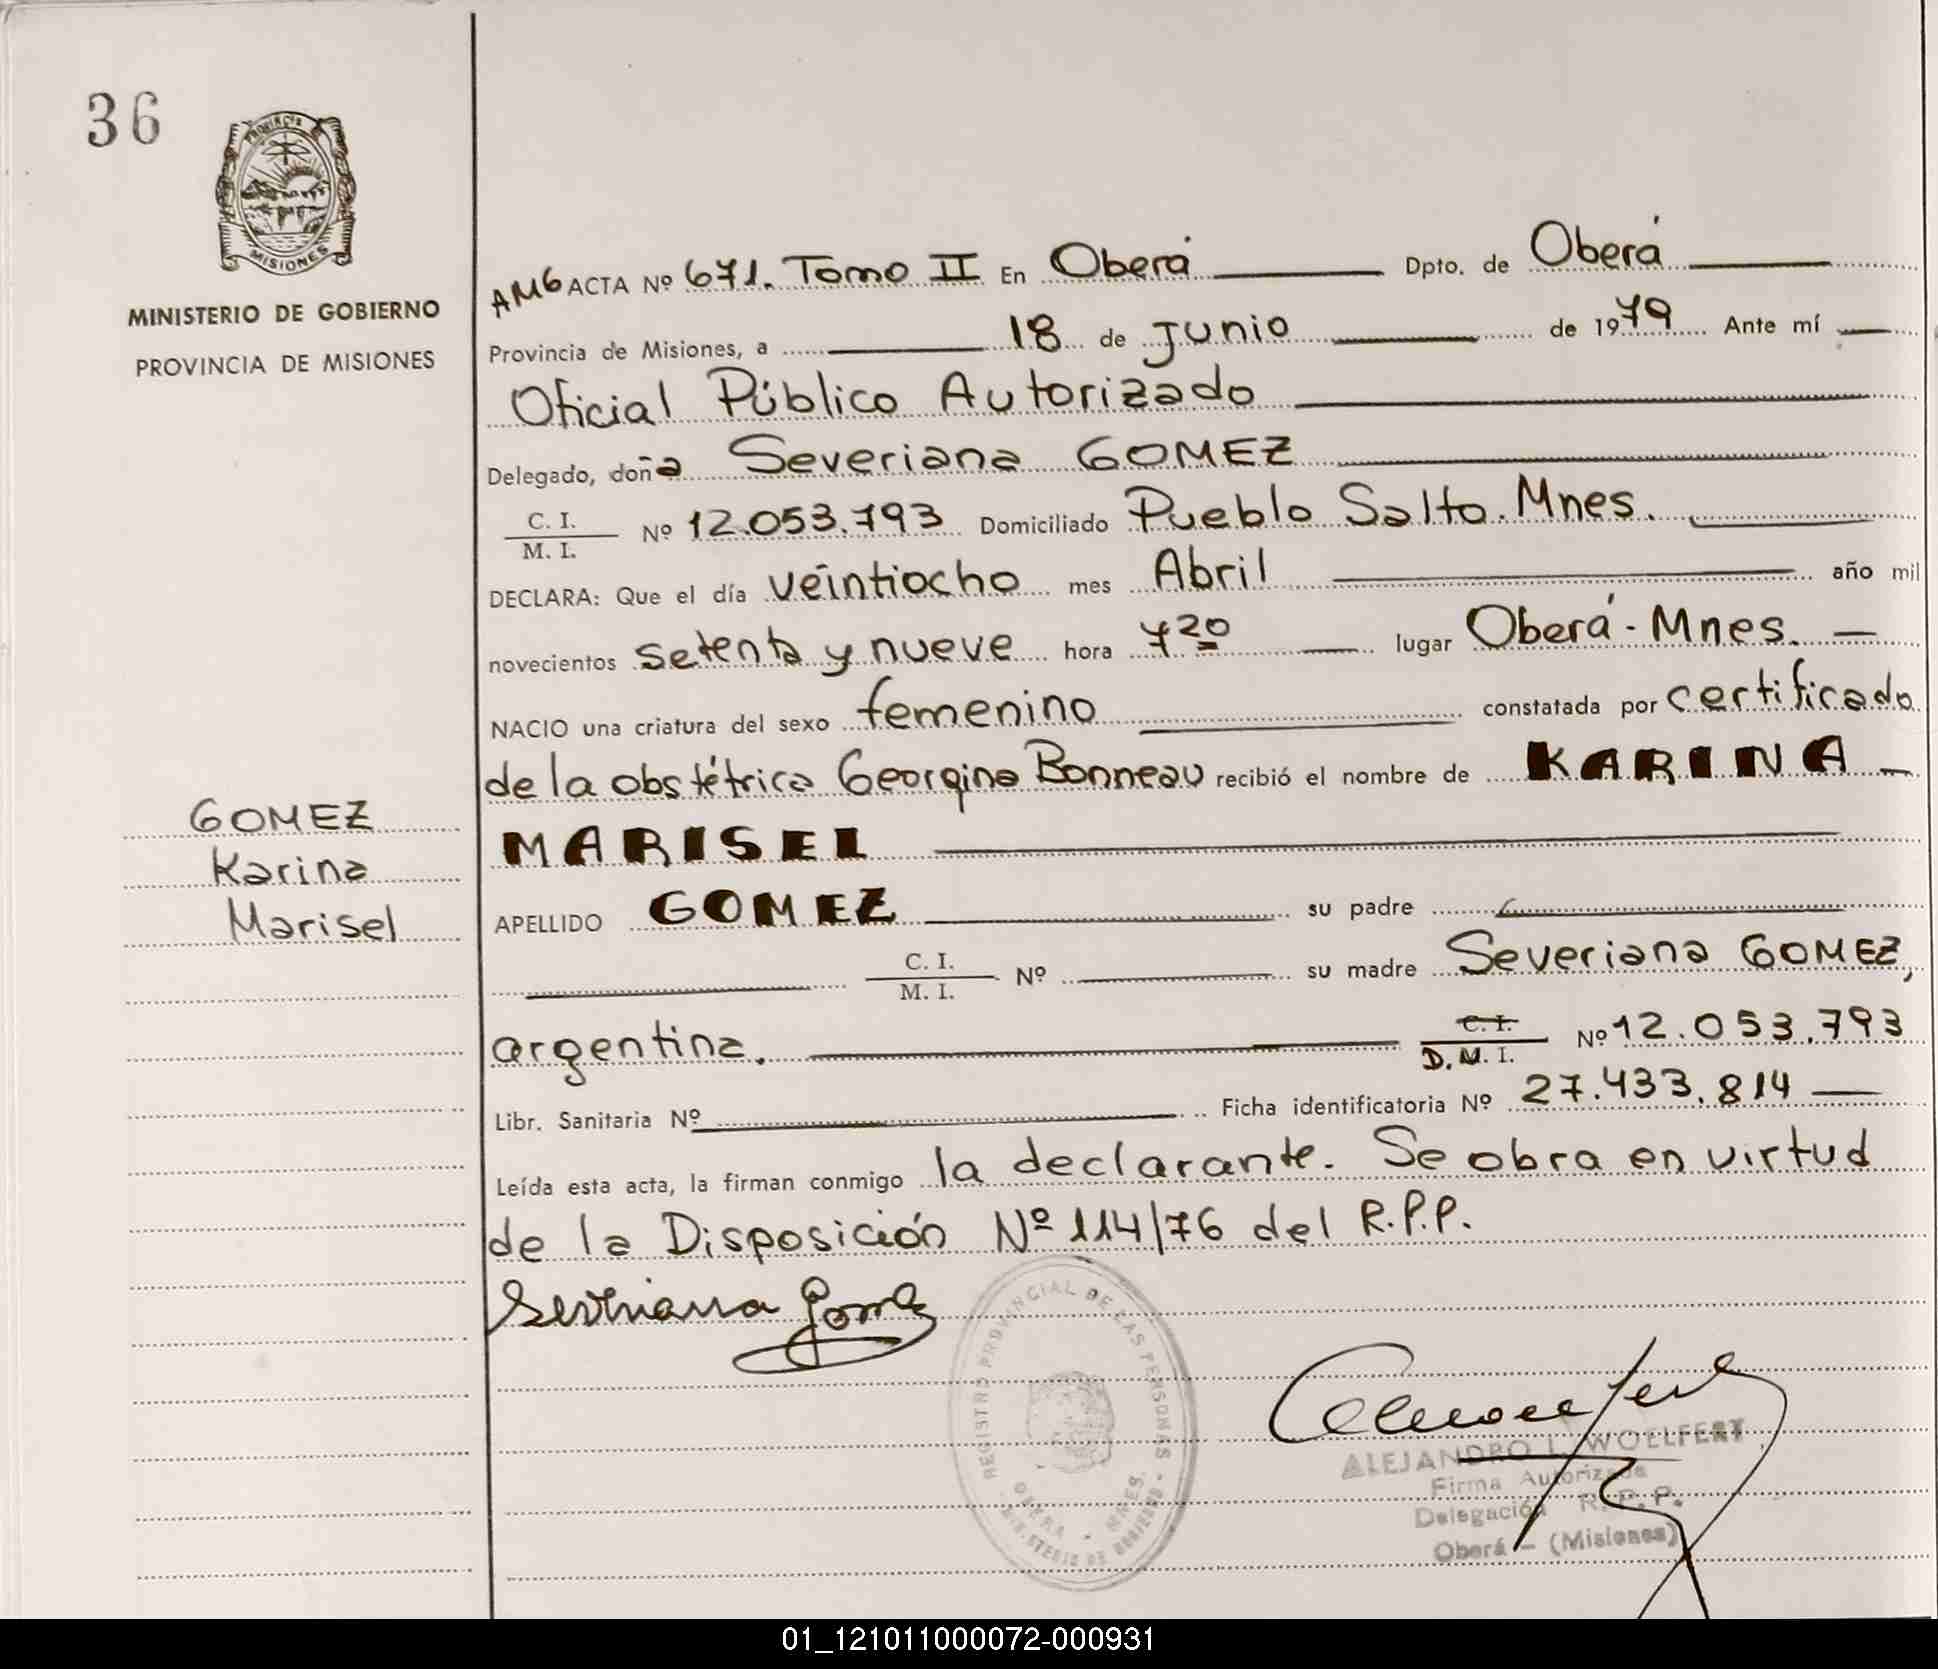 36
PROVINCIA
MISIONES
MINISTERIO DE GOBIERNO
PROVINCIA DE MISIONES
AMG ACTA Nº 671. Tomo II En Oberá Dpto. de Oberá
Provincia de Misiones, a 18 de Junio de 1979 Ante mí
Oficial Público Autorizado
Delegado, doña Severiana GOMEZ
C. I.
M. I. Nº 12.053.793 Domiciliado Pueblo Salto. Mnes.
DECLARA: Que el día veintiocho mes Abril año mil
novecientos setenta y nueve hora 7 20 lugar Oberá - Mnes.
NACIO una criatura del sexo femenino constatada por certificado
de la obstétrica Georgina Bonneau recibió el nombre de KARINA
GOMEZ
Karina
Marisel
MARISEL
APELLIDO GOMEZ su padre
C. I.
M. I. Nº su madre Severiana GOMEZ,
argentina. C. I.
D. M. I. Nº 12.053.793
Libr. Sanitaria Nº Ficha identificatoria Nº 27.433.814
Leída esta acta, la firman conmigo la declarante. Se obra en virtud
de la Disposición Nº 114/76 del R.P.P.
REGISTRO PROVINCIAL DE LAS PERSONAS
OBERA - MNES.
ALEJANDRO L. WOELFERT
Firma Autorizada
Delegación R. P. P.
Oberá - (Misiones)
01_121011000072-000931